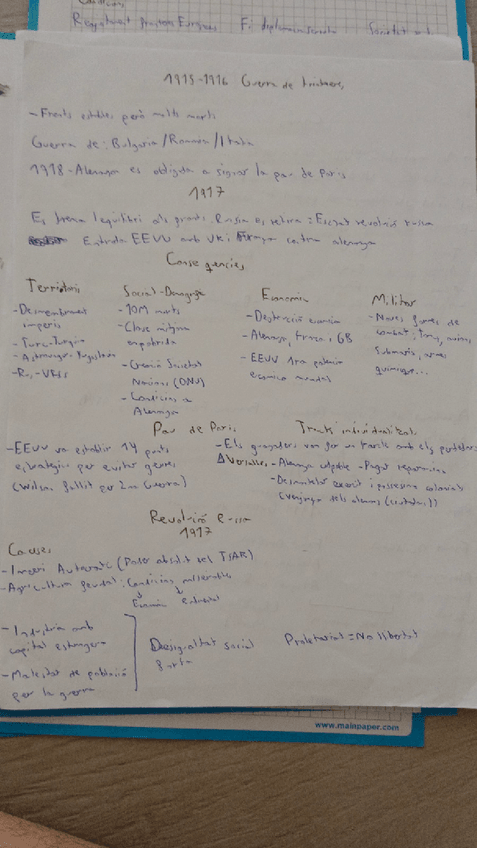 Fi diplomacia Societat
1915-1916 Guerra de trinxeres
- Fronts estables però molts morts
Guerra de: Bulgaria/Romania/Italia
1918 - Alemanya es obligada a signar la pau de Paris
1917
Es trenca l'equilibri als fronts. Rusia es retira: Esclat revolució russa
Entrada EEUU amb UK i França contra alemanya
Conseqüencies
Territoris
- Desmembrament
imperis
- Turc-Turquia
- Astrohongr-Iugoslavia
- Rus - URSS
Social-Demografia
- 10M morts
- Clase mitjana
empobrida
- Creació Societat
Nacions (ONU)
- Condicions a
Alemanya
Economia
- Destrucció economia
- Alemanya, França i GB
- EEUU 1ra potencia
economica mundial
Militar
- Noves formes de
combat: Tancs, avions,
submarins, armes
quimiques...
Pau de Paris
- EEUU va establir 14 punts
estrategics per evitar guerres
(Wilson fallit per 2na Guerra)
Tractats individualitzats
- Els guanyadors van fer un tractat amb els perdedors
Versalles - Alemanya culpable - Pagar reparacions
- Desmantelar exercit i possesions colonials
Revolució Russa
1917
Causes
- Imperi Autocratic (Poder absolut del TSAR)
- Agricultura feudal: Condicions miserables
- Industria amb
capital estranger
- Malestar de població
per la guerra
Desigualtat social
forta
Proletariat = No llibertat
www.mainpaper.com